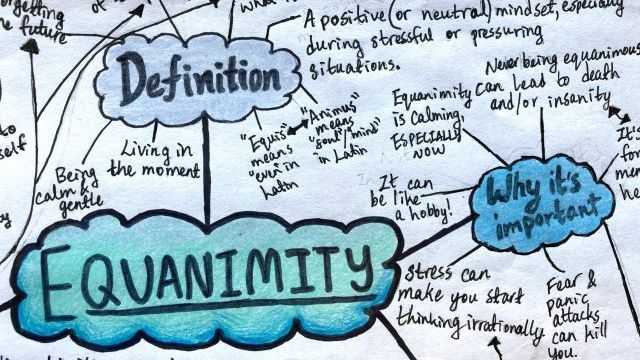 the future
of
Definition
A positive (or neutral) mindset, especially
during stressful or pressuring
situations.
Being
calm &
gentle
Living in
the moment
"Equis"
means
"even" in
Latin
"Animus"
means
"soul"/"mind"
in Latin
EQUANIMITY
Why it's
important
Equanimity
is calming,
ESPECIALLY
NOW
Never being equanimous
can lead to death
and/or insanity
It can
be like
a hobby!
Stress can
make you start
thinking irrationally
Fear &
panic
attacks
can kill
you.
It's
for
to
self